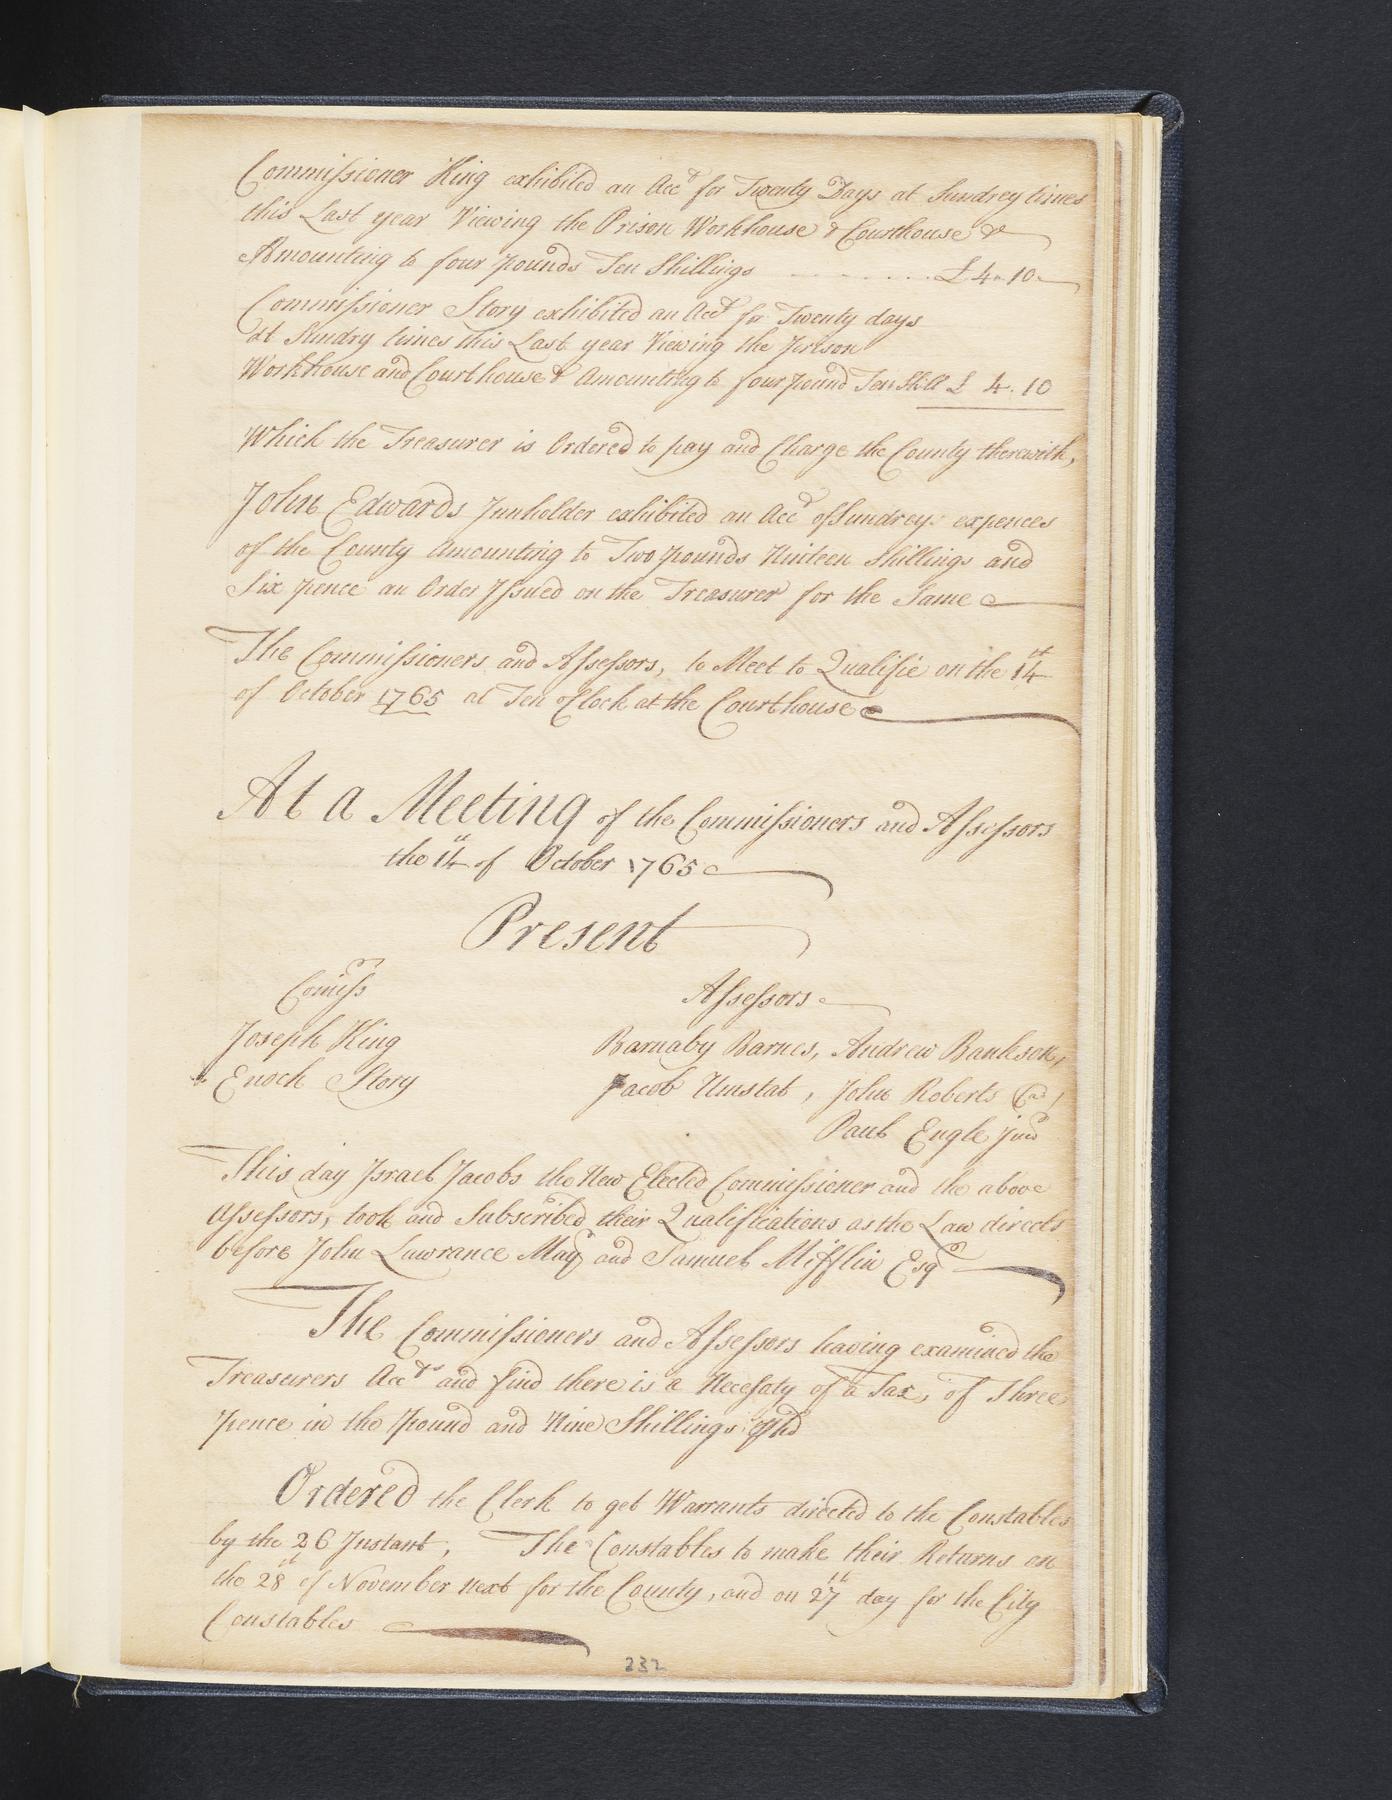 Commissioner King exhibited an Acct for Twenty Days at Sundrey times
this Last year Viewing the Prison Workhouse & Courthouse &c
Amounting to four pounds Ten Shillings ......... £ 4 " 10 "
Commissioner Story exhibited an Acct for Twenty days
at Sundry times this Last year Viewing the Prison
Workhouse and Courthouse & Amounting to four pound Ten Shill £ 4 . 10
Which the Treasurer is Ordered to pay and Charge the County therewith,
John Edwards Innholder exhibited an Acct of Sundreys expences
of the County Amounting to Two pounds Ninteen Shillings and
Six pence an Order Issued on the Treasurer for the Same
The Commissioners and Assessors, to Meet to Qualifie on the 14th
of October 1765 at Ten oClock at the Courthouse
At a Meeting of the Commissioners and Assessors
the 14th of October 1765
Present
Comiss Assessors
Joseph King Barnaby Barnes, Andrew Bankson,
Enoch Story Jacob Umstat, John Roberts
Paul Engle junr
This day Israel Jacobs the New Elected Commissioner and the above
Assessors, took and Subscribed their Qualifications as the Law directs
before John Lawrance Mayr and Samuel Mifflin Esqr
The Commissioners and Assessors having examined the
Treasurers Accts and find there is a Necessaty of a Tax, of Three
pence in the pound and Nine Shillings
Ordered the Clerk to get Warrants directed to the Constables
by the 26 Instant, The Constables to make their Returns on
the 28th of November next for the County, and on 27th day for the City
Constables
232